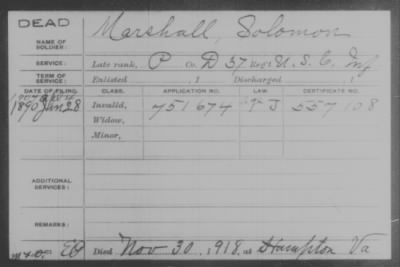 DEAD
NAME OF SOLDIER: Marshall, Solomon
SERVICE: Late rank, P Co. D 37 Reg't U.S.C. Inf
TERM OF SERVICE: Enlisted , 1 Discharged , 1
DATE OF FILING. CLASS. APPLICATION NO. LAW. CERTIFICATE NO.
1890 Jan 28 Invalid, 751674 J 557108
Widow,
Minor,
ADDITIONAL SERVICES:
REMARKS:
Died Nov 30, 1918, at Hampton Va